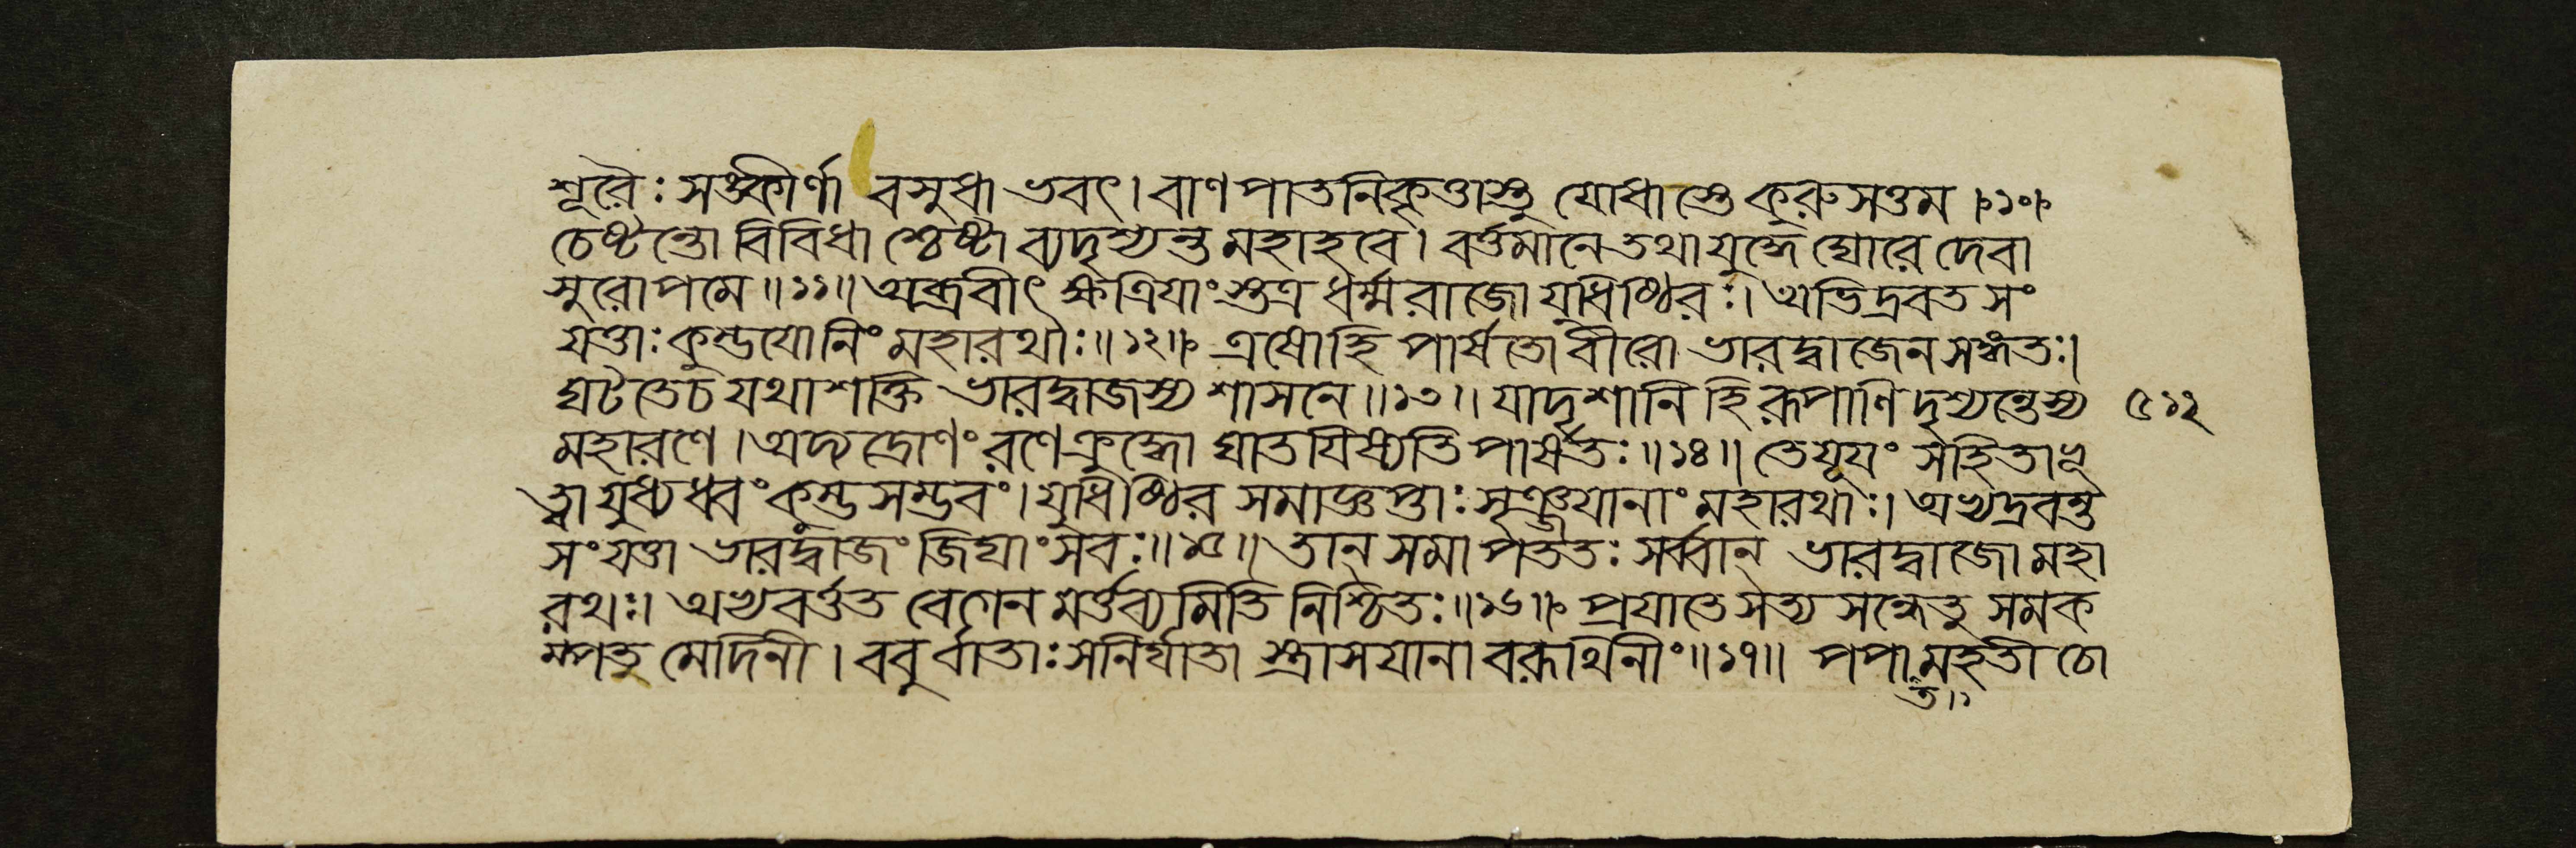 শূরৈঃ সঙ্কীর্ণা বসুধা ভবৎ। বাণপাতনিকৃত্তাস্তু যোধাস্তে কুরুসত্তম ॥১০॥
চেষ্টন্তো বিবিধা শ্চেষ্টা ব্যদৃশ্যন্ত মহাহবে। বর্ত্তমানে তথা যুদ্ধে ঘোরে দেবা
সুরোপমে ॥১১॥ অব্রবীৎ ক্ষত্রিযাংস্তত্র ধর্ম্মরাজো যুধিষ্ঠিরঃ। অভিদ্রবত সং
যত্তাঃ কুম্ভযোনিং মহারথাঃ ॥১২॥ এষোহি পার্ষতো বীরো ভারদ্বাজেন সঙ্গতঃ।
ঘটতে চ যথাশক্তি ভারদ্বাজস্য শাসনে ॥১৩॥ যাদৃশানি হি রূপাণি দৃশ্যন্তেস্য ৫১২
মহারণে। অদ্য দ্রোণং রণে ক্রুদ্ধো ঘাতযিষ্যতি পার্ষতঃ ॥১৪॥ তে যূযং সহিতা ভূ
ত্বা যুধ্যধ্বং কুম্ভসম্ভবং। যুধিষ্ঠির সমাজ্ঞপ্তাঃ সৃঞ্জযানাং মহারথাঃ। অভ্যদ্রবন্ত
সংযত্তা ভারদ্বাজং জিঘাংসবঃ ॥১৫॥ তান্ সমাপততঃ সর্ব্বান্ ভারদ্বাজো মহা
রথঃ। অভ্যবর্ত্তত বেগেন মর্ত্তব্যমিতি নিশ্চিতঃ ॥১৬॥ প্রযাতে সত্যসন্ধেতু সমক
ম্পত মেদিনী। ববুর্বাতাঃ সনির্ঘাতা স্ত্রাসযানা বরূথিনীং ॥১৭॥ পপা মহতী চো
ত॥১